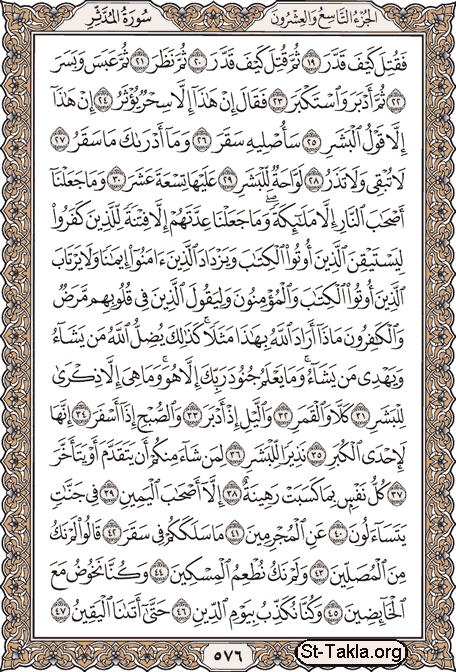 الجزء التاسع والعشرون
سورة المدثر
فَقُتِلَ كَيْفَ قَدَّرَ ١٩ ثُمَّ قُتِلَ كَيْفَ قَدَّرَ ٢٠ ثُمَّ نَظَرَ ٢١ ثُمَّ عَبَسَ وَبَسَرَ
٢٢ ثُمَّ أَدْبَرَ وَٱسْتَكْبَرَ ٢٣ فَقَالَ إِنْ هَٰذَآ إِلَّا سِحْرٌ يُؤْثَرُ ٢٤ إِنْ هَٰذَآ
إِلَّا قَوْلُ ٱلْبَشَرِ ٢٥ سَأُصْلِيهِ سَقَرَ ٢٦ وَمَآ أَدْرَىٰكَ مَا سَقَرُ ٢٧
لَا تُبْقِى وَلَا تَذَرُ ٢٨ لَوَّاحَةٌ لِّلْبَشَرِ ٢٩ عَلَيْهَا تِسْعَةَ عَشَرَ ٣٠ وَمَا جَعَلْنَآ
أَصْحَٰبَ ٱلنَّارِ إِلَّا مَلَٰٓئِكَةً ۙ وَمَا جَعَلْنَا عِدَّتَهُمْ إِلَّا فِتْنَةً لِّلَّذِينَ كَفَرُوا۟
لِيَسْتَيْقِنَ ٱلَّذِينَ أُوتُوا۟ ٱلْكِتَٰبَ وَيَزْدَادَ ٱلَّذِينَ ءَامَنُوٓا۟ إِيمَٰنًا ۙ وَلَا يَرْتَابَ
ٱلَّذِينَ أُوتُوا۟ ٱلْكِتَٰبَ وَٱلْمُؤْمِنُونَ ۙ وَلِيَقُولَ ٱلَّذِينَ فِى قُلُوبِهِم مَّرَضٌ
وَٱلْكَٰفِرُونَ مَاذَآ أَرَادَ ٱللَّهُ بِهَٰذَا مَثَلًا ۚ كَذَٰلِكَ يُضِلُّ ٱللَّهُ مَن يَشَآءُ
وَيَهْدِى مَن يَشَآءُ ۚ وَمَا يَعْلَمُ جُنُودَ رَبِّكَ إِلَّا هُوَ ۚ وَمَا هِىَ إِلَّا ذِكْرَىٰ
لِلْبَشَرِ ٣١ كَلَّا وَٱلْقَمَرِ ٣٢ وَٱلَّيْلِ إِذْ أَدْبَرَ ٣٣ وَٱلصُّبْحِ إِذَآ أَسْفَرَ ٣٤ إِنَّهَا
لَإِحْدَى ٱلْكُبَرِ ٣٥ نَذِيرًا لِّلْبَشَرِ ٣٦ لِمَن شَآءَ مِنكُمْ أَن يَتَقَدَّمَ أَوْ يَتَأَخَّرَ
٣٧ كُلُّ نَفْسٍۭ بِمَا كَسَبَتْ رَهِينَةٌ ٣٨ إِلَّآ أَصْحَٰبَ ٱلْيَمِينِ ٣٩ فِى جَنَّٰتٍ
يَتَسَآءَلُونَ ٤٠ عَنِ ٱلْمُجْرِمِينَ ٤١ مَا سَلَكَكُمْ فِى سَقَرَ ٤٢ قَالُوا۟ لَمْ نَكُ
مِنَ ٱلْمُصَلِّينَ ٤٣ وَلَمْ نَكُ نُطْعِمُ ٱلْمِسْكِينَ ٤٤ وَكُنَّا نَخُوضُ مَعَ
ٱلْخَآئِضِينَ ٤٥ وَكُنَّا نُكَذِّبُ بِيَوْمِ ٱلدِّينِ ٤٦ حَتَّىٰٓ أَتَىٰنَا ٱلْيَقِينُ ٤٧
٥٧٦
St-Takla.org